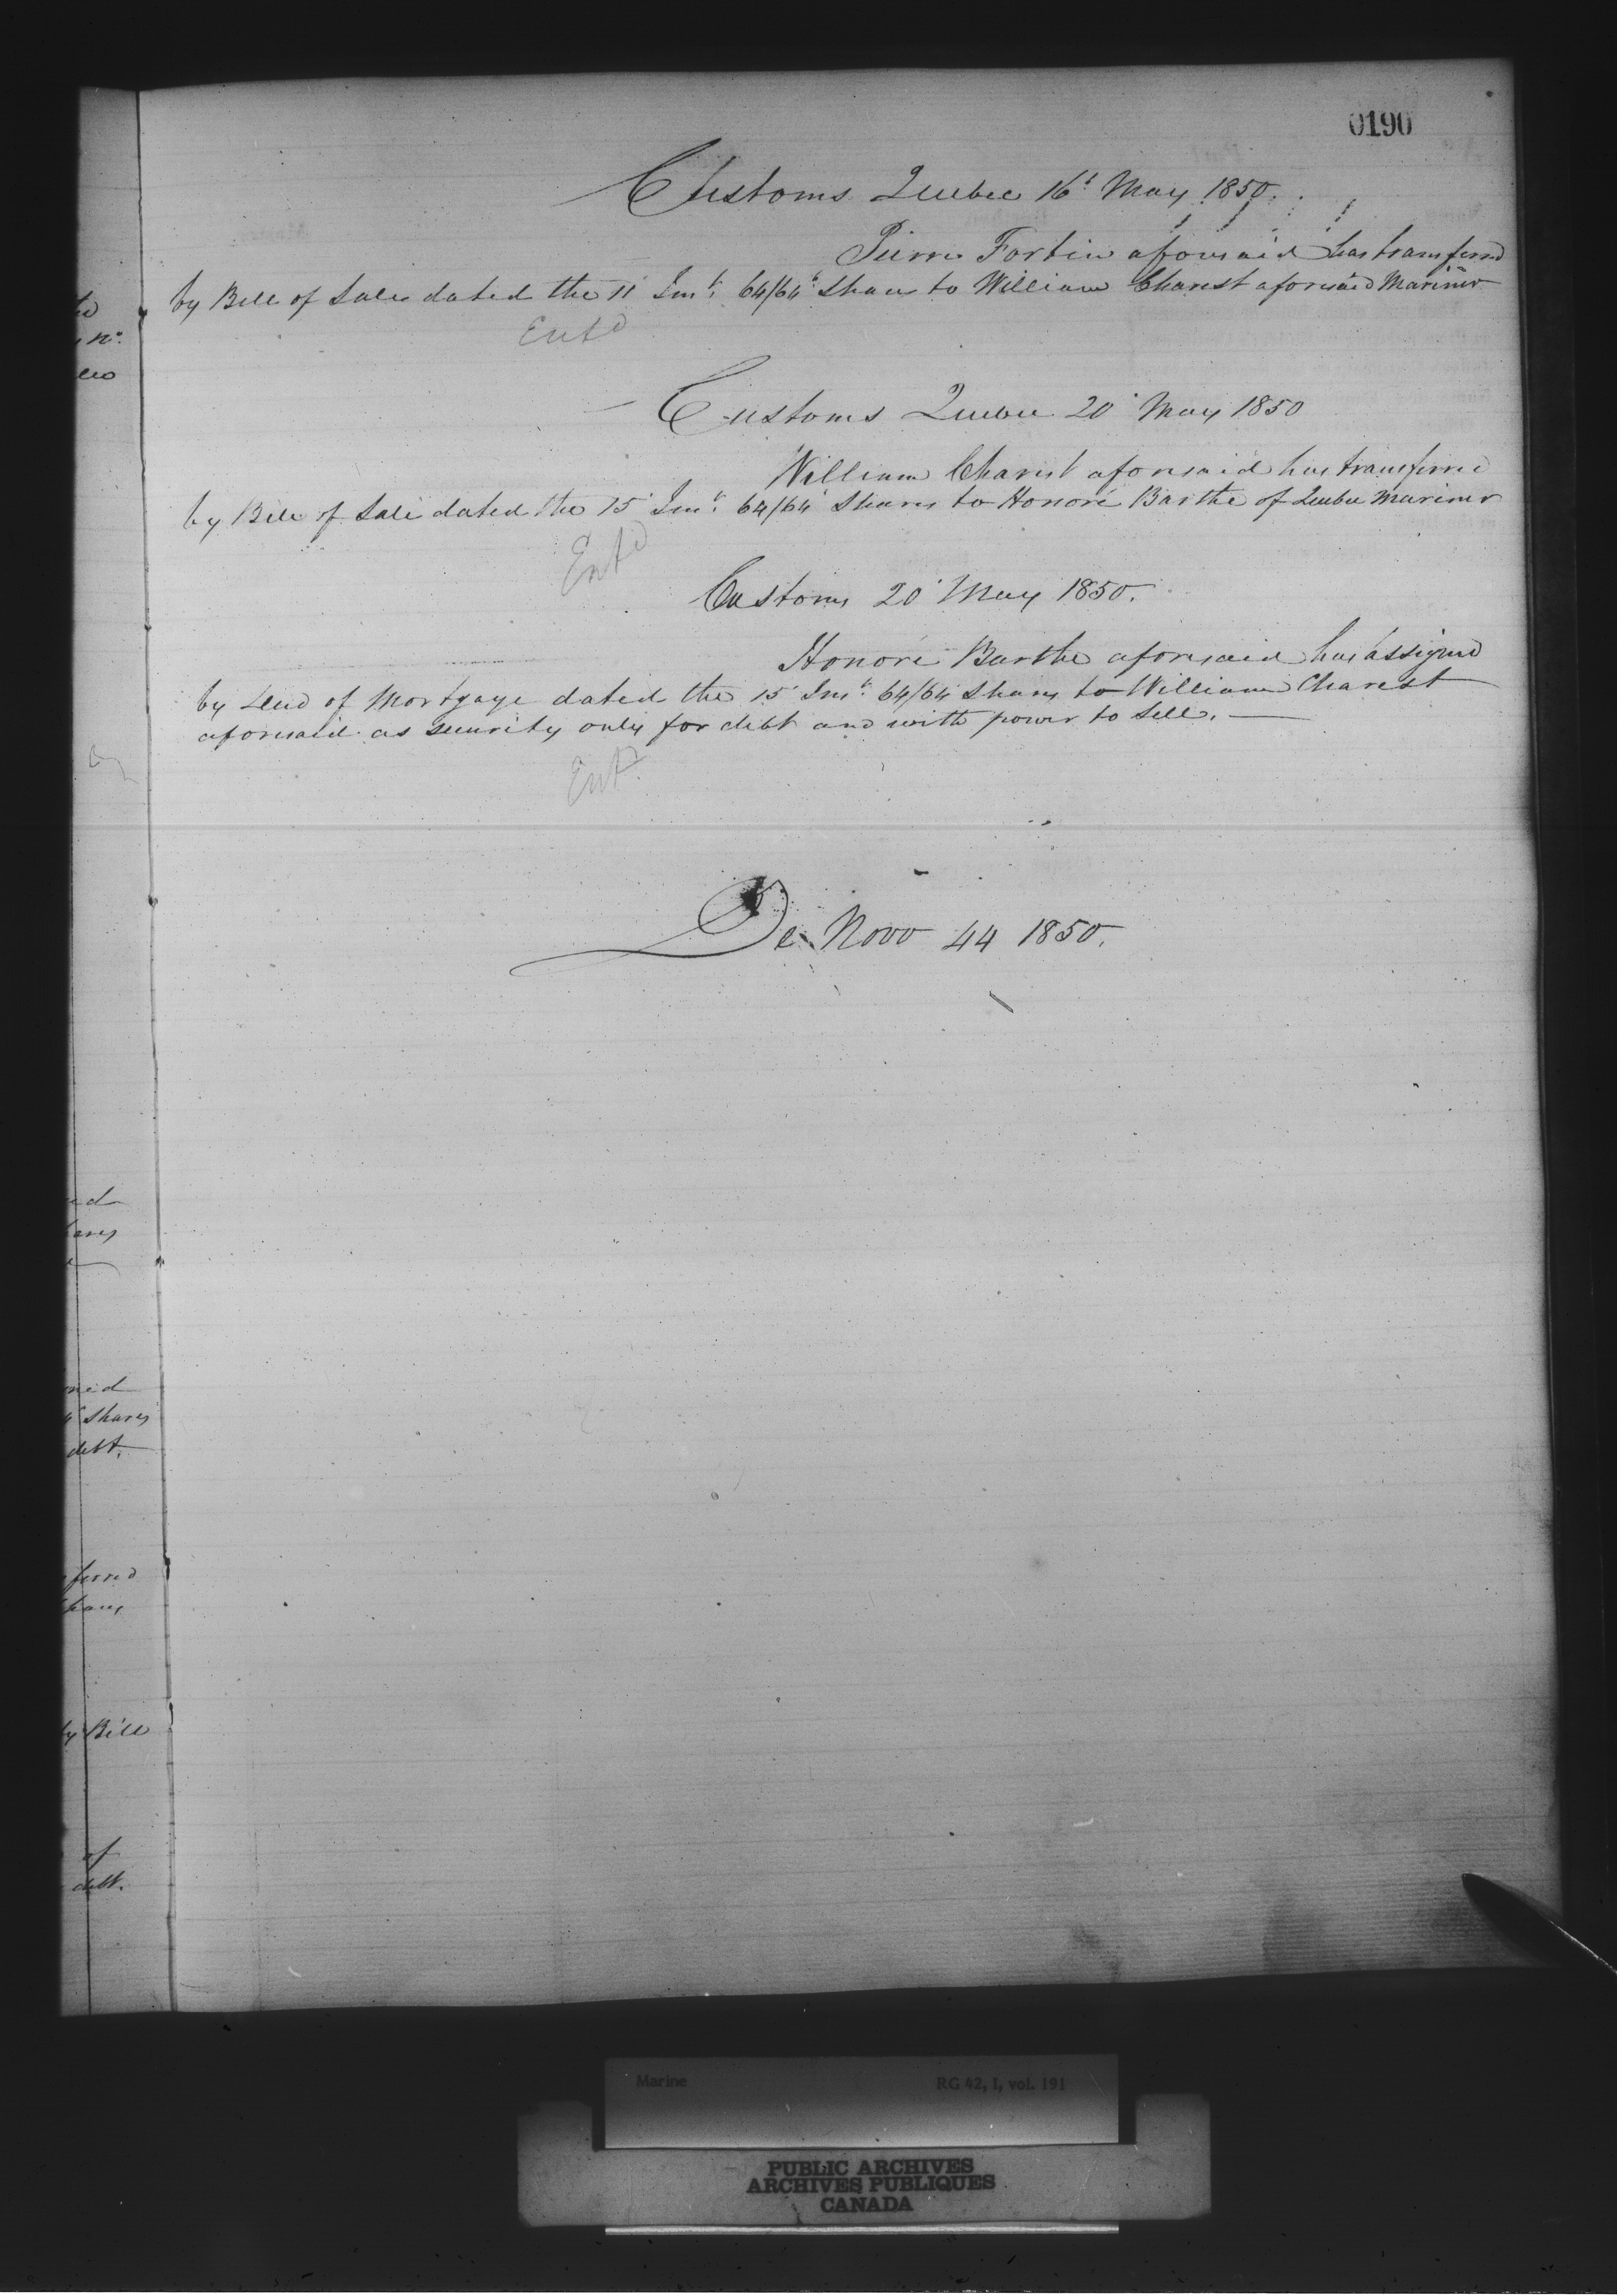 0190
Customs Quebec 16t May 1850.
Pierre Fortin aforesaid has transferred
by Bill of Sale dated the 11 Inst. 64/64t Shares to William Charest aforesaid Mariner
Entd
Customs Quebec 20 May 1850
William Charest aforesaid has transferred
by Bill of Sale dated the 15 Inst. 64/64 Shares to Honoré Barthe of Quebec Mariner
Entd
Customs 20 May 1850.
Honoré Barthe aforesaid has assigned
by Deed of Mortgage dated the 15 Inst. 64/64 Shares to William Charest
aforesaid as security only for debt and with power to sell.
Entd
De Novo 44 1850.
ned
shares
debt.
ferred
shares
by Bill
of
debt.
Marine RG 42, I, vol. 191
PUBLIC ARCHIVES
ARCHIVES PUBLIQUES
CANADA